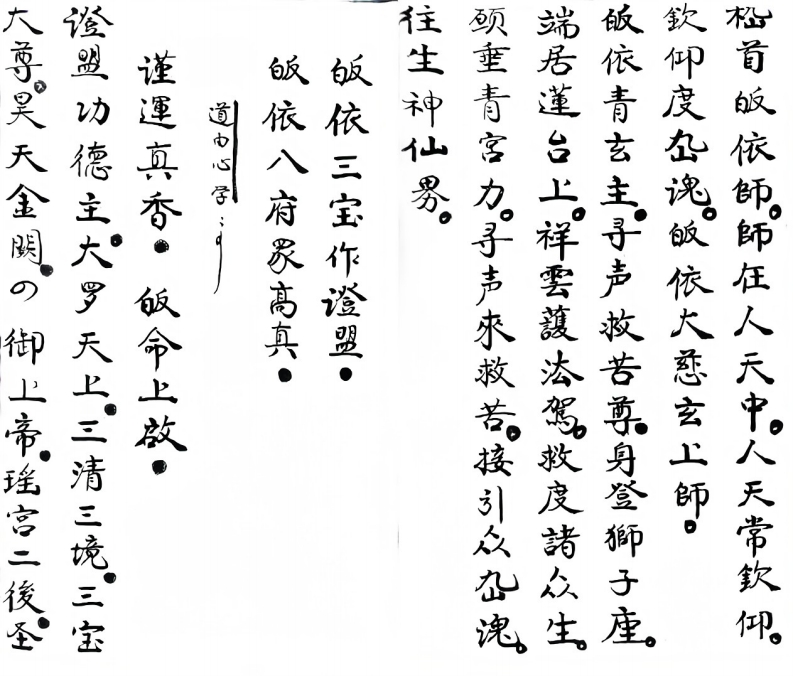 稽首皈依師。師在人天中。人天常欽仰。
欽仰度孤魂。皈依大慈玄上師。
皈依青玄主。寻声救苦尊。身登獅子座。
端居蓮台上。祥雲護法駕。救度諸众生。
願垂青宮力。寻声來救苦。接引众孤魂。
往生神仙界。
皈依三宝作證盟。
皈依八府眾高真。
道由心学
謹運真香。皈命上啟。
證盟功德主。大罗天上。三清三境。三宝
大尊。昊天金闕。の御上帝。瑶宮二後。圣